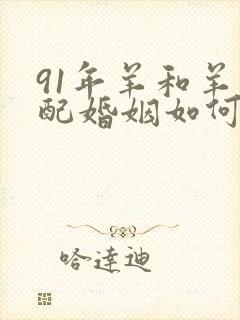 91年羊和羊
配婚姻如何
哈達迪